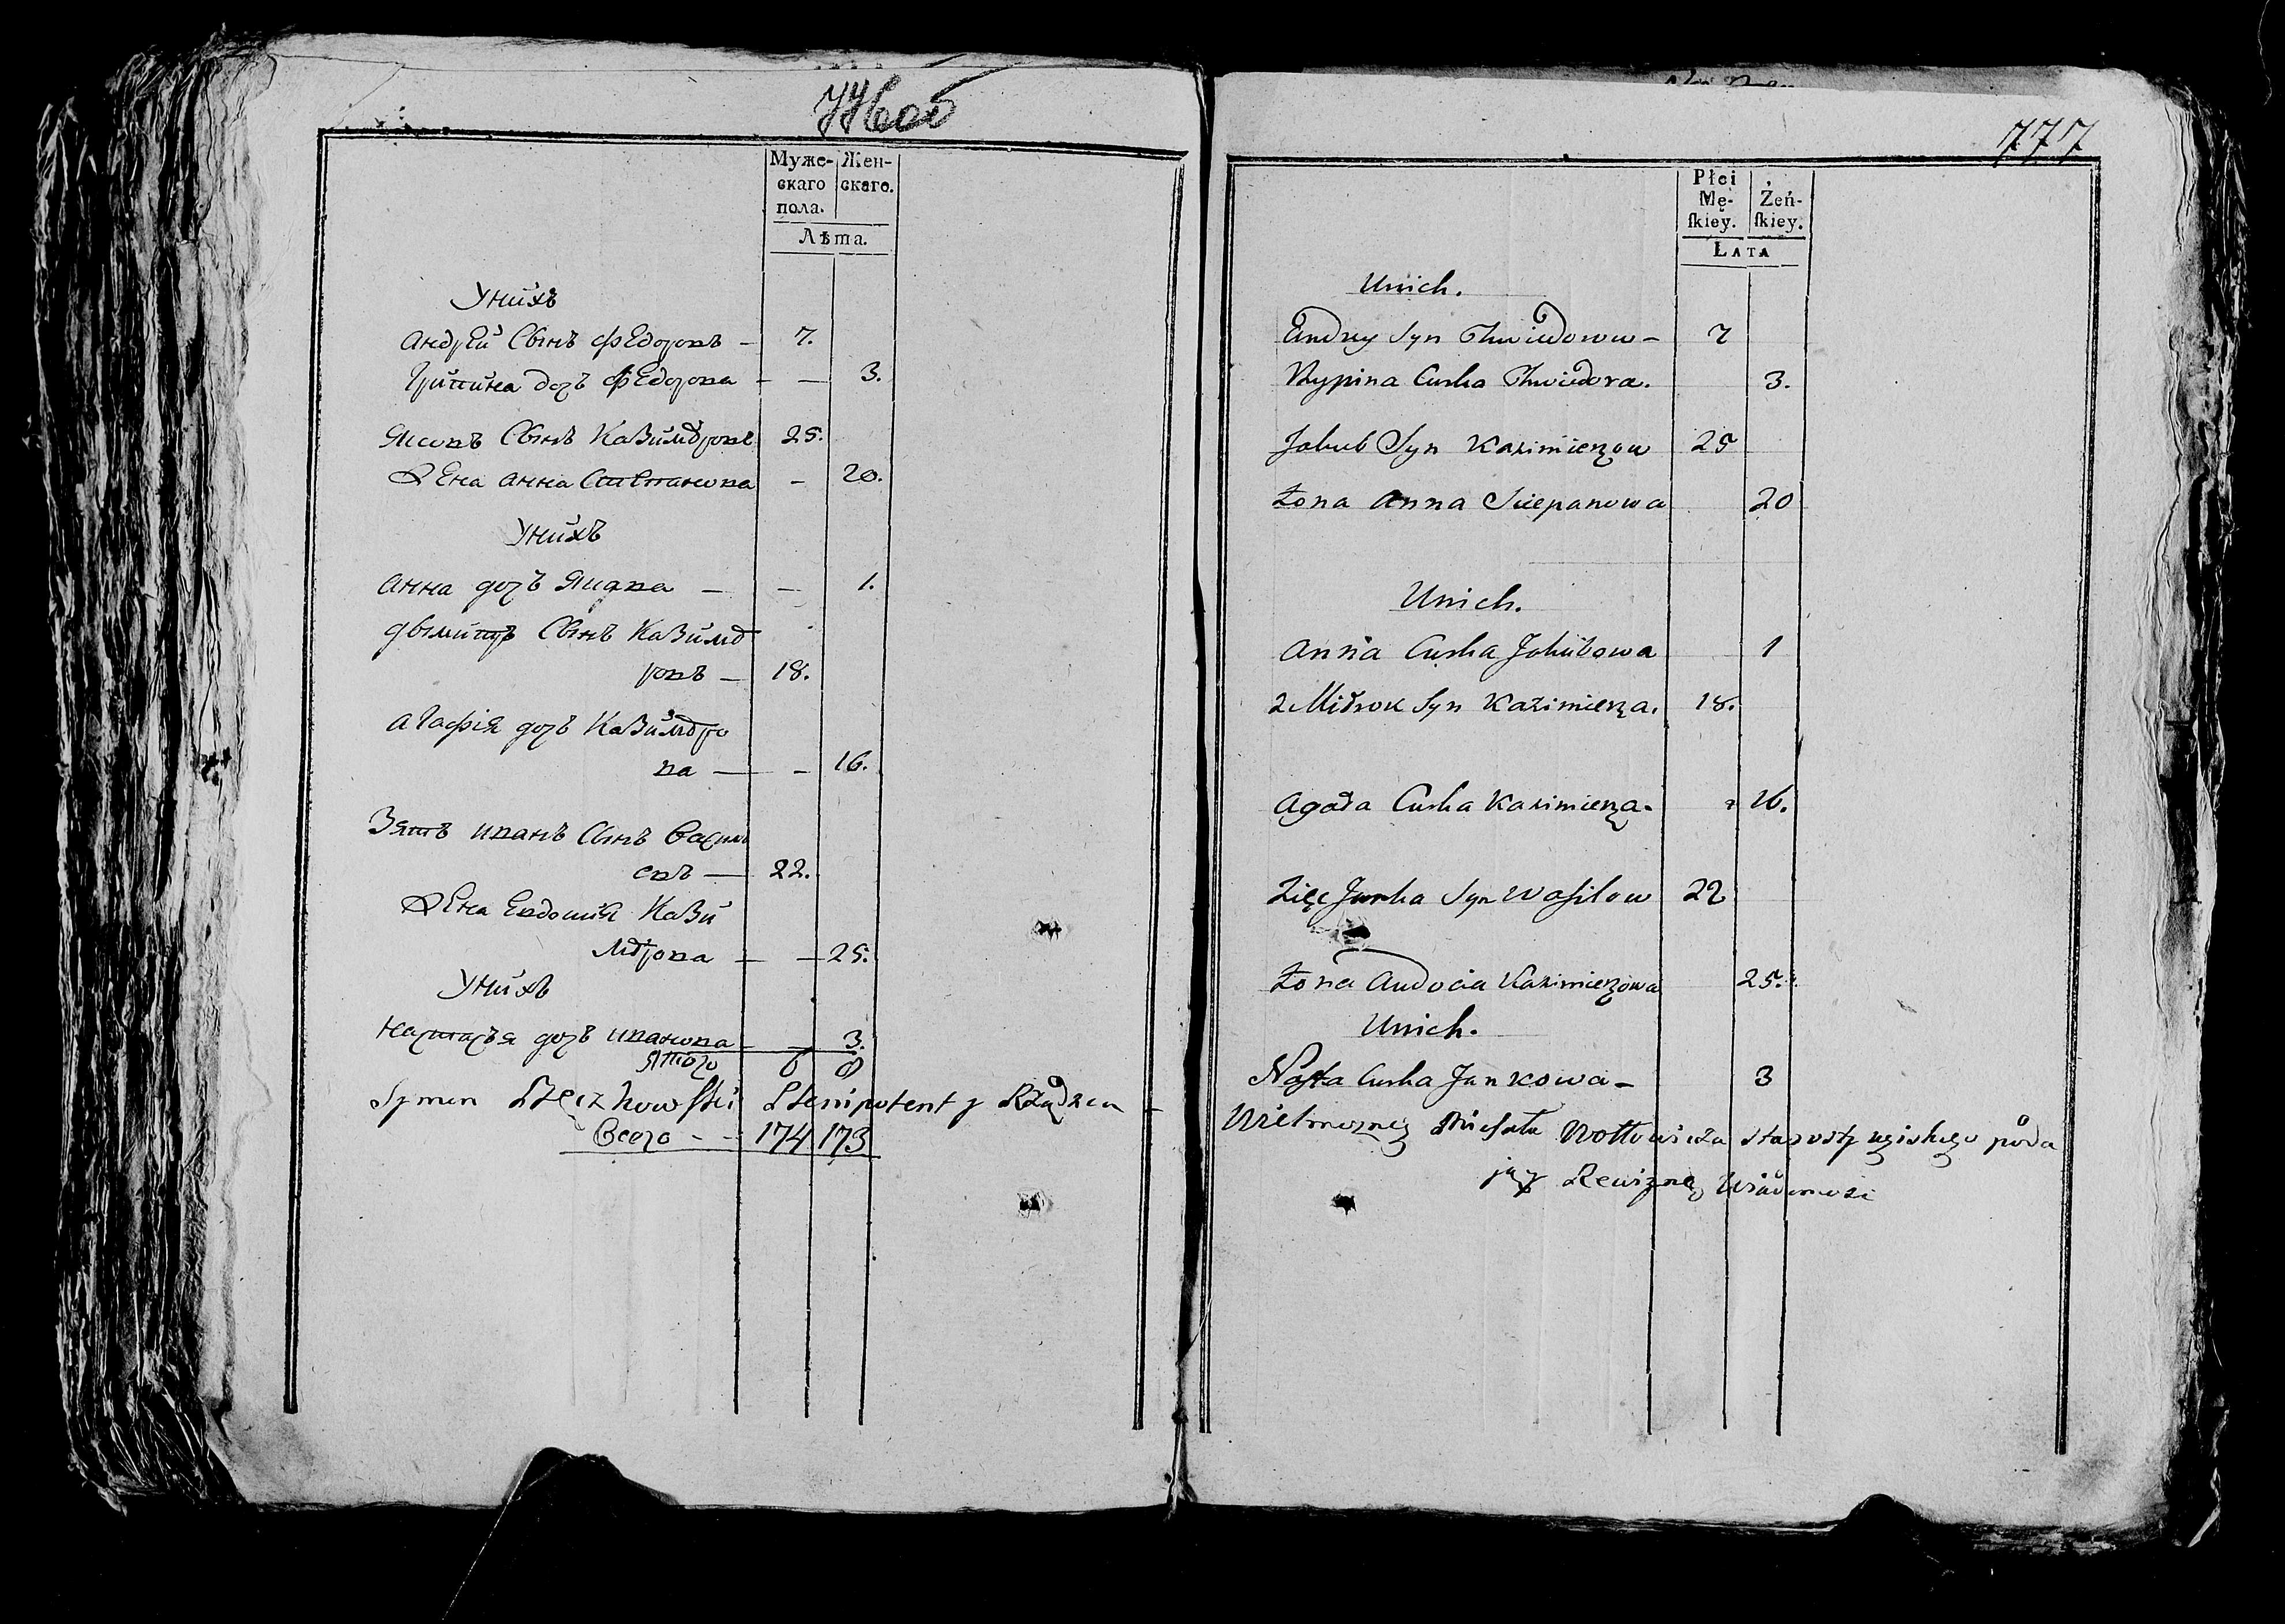 776 об
Муже- Жен-
скаго скаго.
пола.
Лѣта.
У нихъ
Андрей сынъ Федоровъ — 7.
Грипина дочъ Федорова — — 3.
Яковъ сынъ Казимѣровъ 25.
Жена Анна Степанова — 20.
У нихъ
Анна дочъ Якова — — 1.
Дымитръ сынъ Казимѣ
ровъ — 18.
Агафія дочъ Казимѣро
ва — — 16.
Зять Иванъ сынъ Василь
евъ — 22.
Жена Евдокия Кази
мѣрова — — 25.
У нихъ
Настасья дочъ Иванова — — 3.
Итого 6 8
Symon Plenipotent y Rządzca —
Всего - - 174 173
777
Płci
Mę- Żeń-
ſkiey. ſkiey.
Lata
Unich.
Andrzey Syn Chwiedorow — 7
Krypina Curka Chwiedora. 3.
Jakub Syn Kazimierzow 25
Żona Anna Sciepanowa 20
Unich.
Anna Curka Jakubowa 1
Syn Kazimierza. 18.
Agata Curka Kazimierza. 16.
Zięć Janka Syn Wasilow 22
Żona Audocia Kazimierzowa 25.
Unich.
Nasta Curka Jankowa — 3
Wielmożnego Michała Wołłowicza poda
jący Rewizną Wiadomość